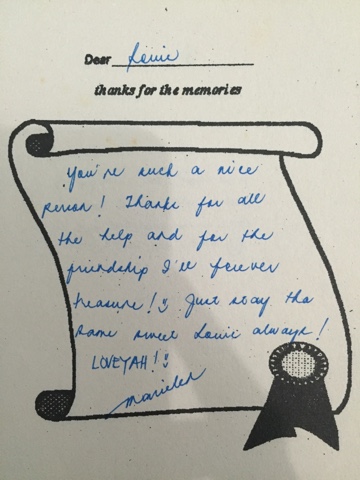 Dear Louie
thanks for the memories
You're such a nice
person! Thanks for all
the help and for the
friendship I'll forever
treasure! Just stay the
same sweet Louie always!
LOVEYAH!